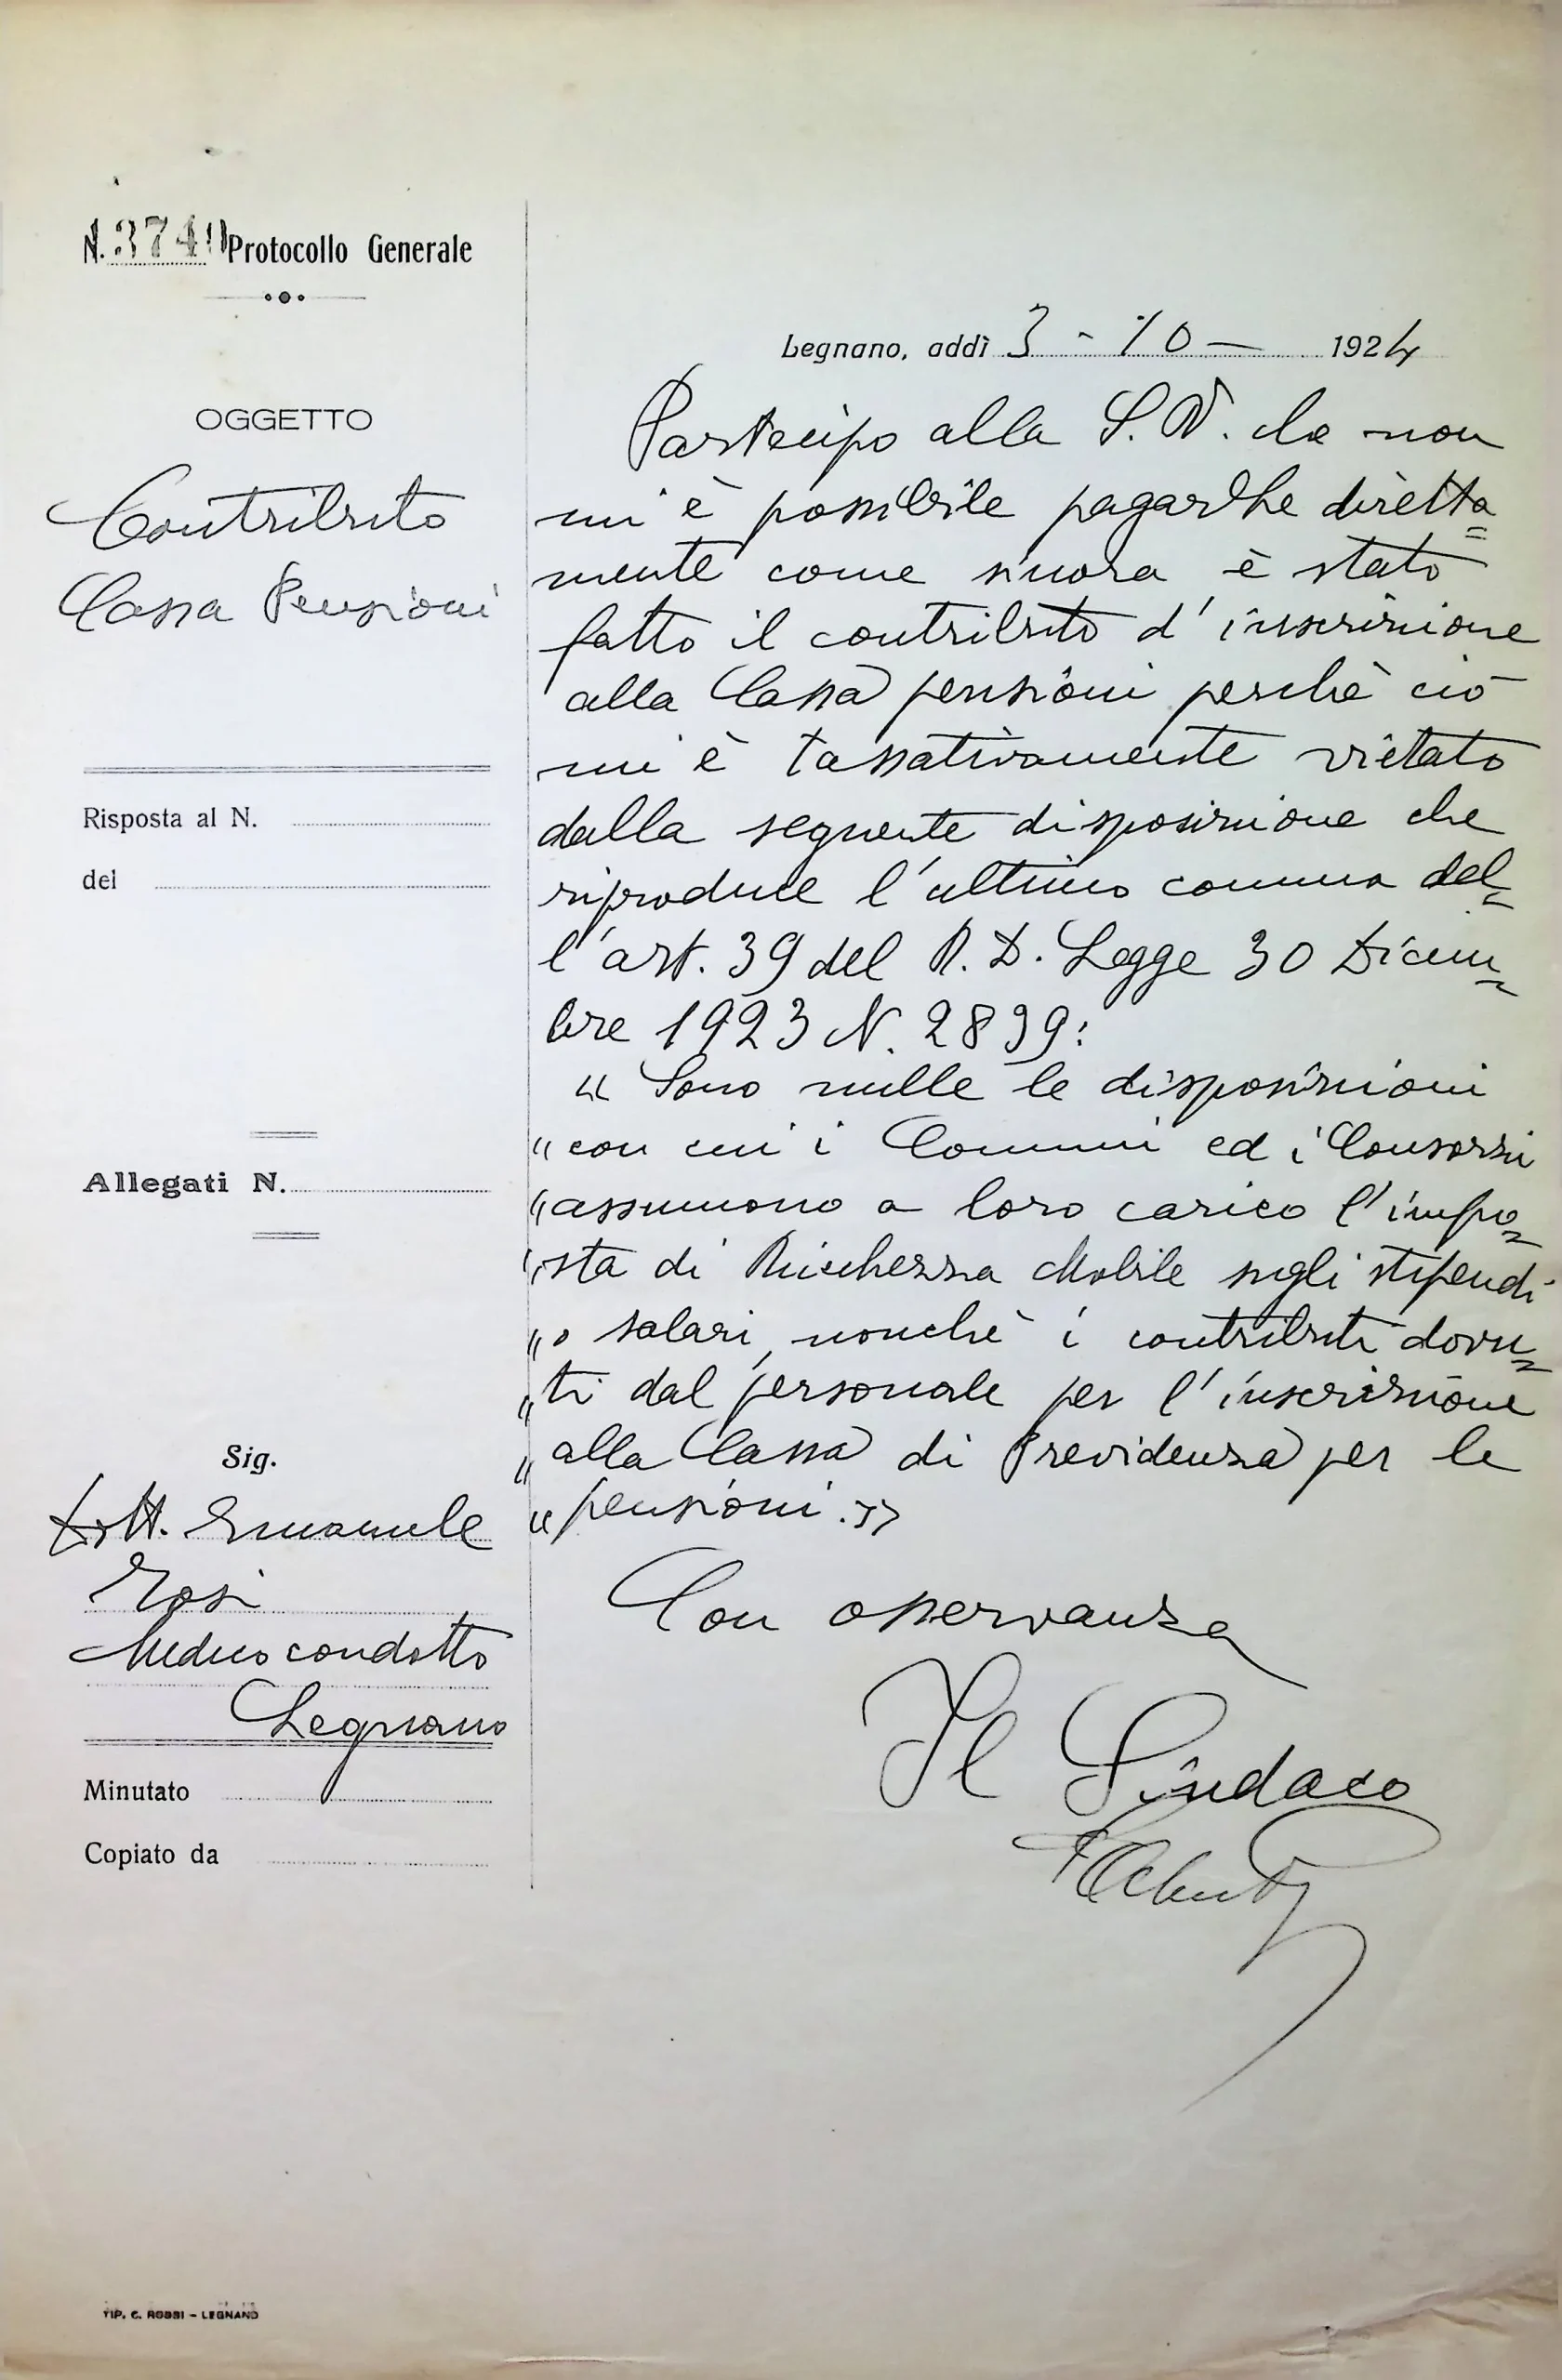 N. 3740 Protocollo Generale
OGGETTO
Contributo
Cassa Pensioni
Risposta al N.
del
Allegati N.
Sig.
Dott. Emanuele
Rosi
Medico condotto
Legnano
Minutato
Copiato da
TIP. C. ROSSI - LEGNANO
Legnano, addì 3 - 10 - 1924
Partecipo alla S. V. che non
mi è possibile pagarLhe diretta=
mente come sinora è stato
fatto il contributo d'inscrizione
alla Cassa pensioni perchè ciò
mi è tassativamente vietato
dalla seguente disposizione che
riproduce l'ultimo comma del=
l'art. 39 del R. D. Legge 30 Dicem=
bre 1923 N. 2839:
" Sono nulle le disposizioni
" con cui i Comuni ed i Consorzi
" assumono a loro carico l'impo=
" sta di Ricchezza Mobile sugli stipendi
" o salari, nonchè i contributi dovu=
" ti dal personale per l'inscrizione
" alla Cassa di Previdenza per le
" pensioni. »
Con osservanza
Il Sindaco